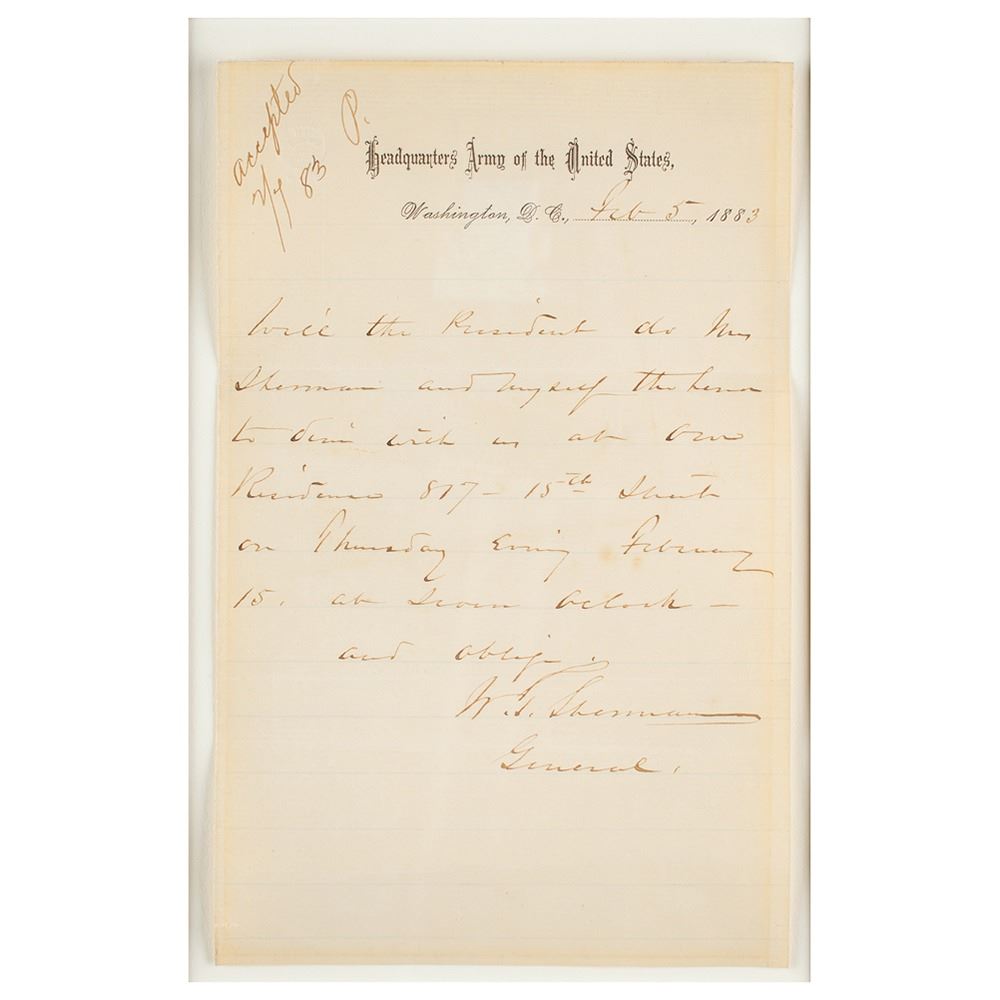 accepted
2/7 83 P.
Headquarters Army of the United States,
Washington, D. C., Feb 5, 1883
Will the President do Mrs
Sherman and myself the honor
to dine with us at our
Residence 817 - 15th Street
on Thursday Evening February
15. at Seven Oclock -
and oblige.
W. T. Sherman
General.